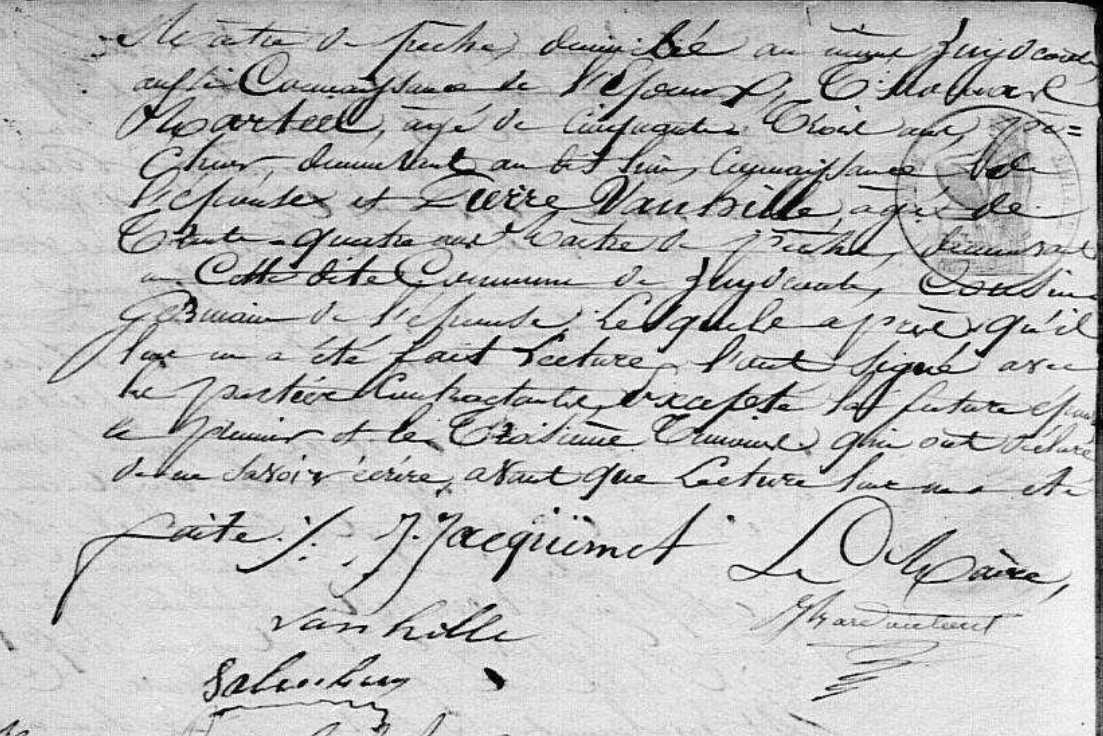 Maître de pêche, domicilié au même Zuydcoote,
aussi Connaissance de l'Epoux, Thomas
Marteel, agé de Cinquante Trois ans, pê=
cheur, demeurant au dit lieu, Connaissance de
l'épouse et Pierre Vanhille, âgé de
Trente-quatre ans Maître de pêche, demeurant
en Cette dite Commune de Zuydcoote, Cousin
Germain de l'épouse, Lesquels après qu'il
leur en a été fait Lecture, l'ont Signé avec
les parties Contractantes, excepté la future épouse
le premier et le Troisième Témoins qui ont déclaré
de ne Savoir écrire, avant que Lecture leur en a été
faite ./. J. Jacquemet Le Maire,
Vanhille